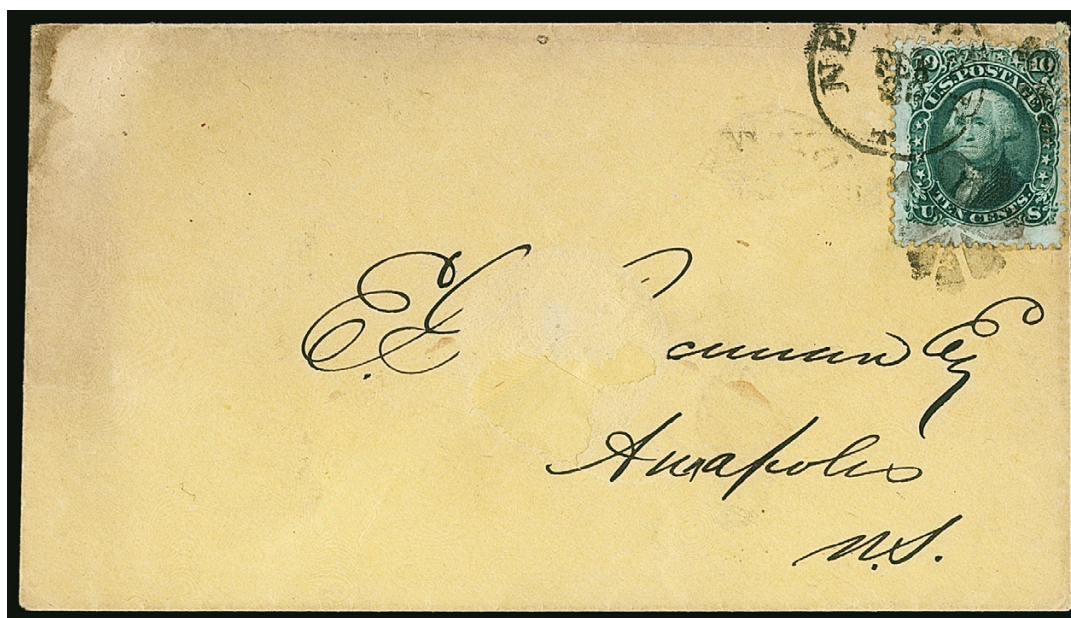 NE
10 10
U.S. POSTAGE
TEN CENTS.
U S
E. E.
Esq
Annapolis
N.S.